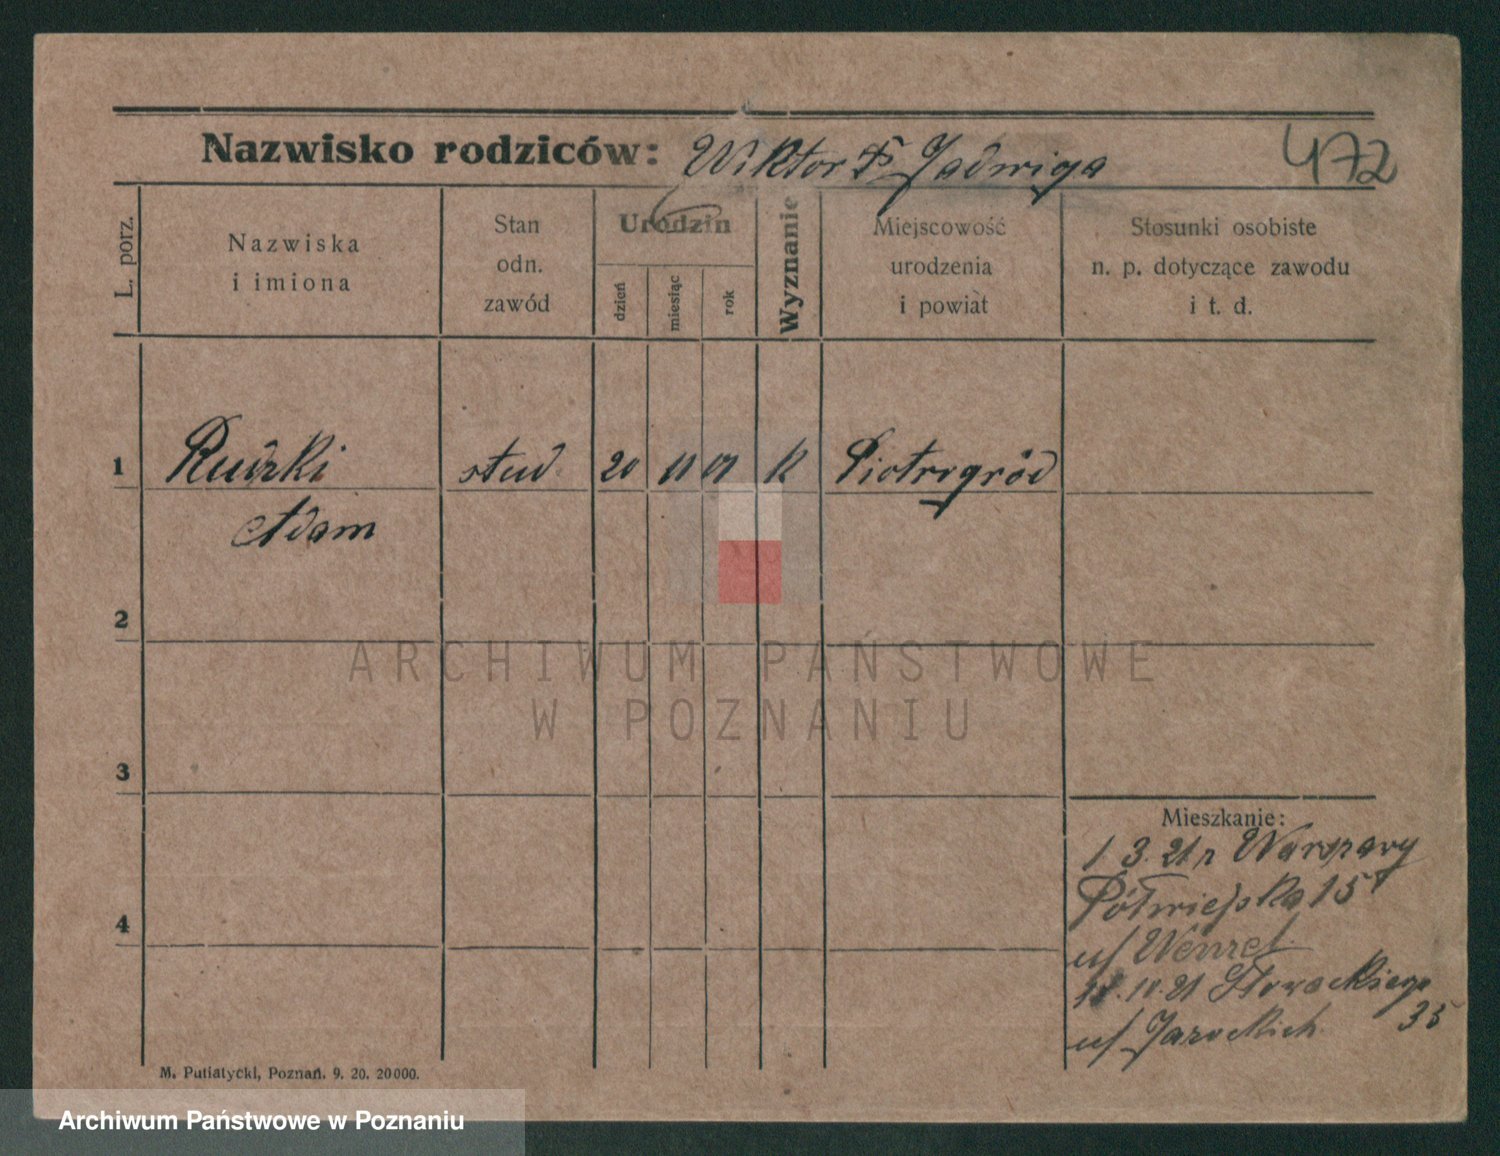 Nazwisko rodziców: Wiktor Jadwiga 472
L. porz.
Nazwiska
i imiona
Stan
odn.
zawód
Urodzin
dzień
miesiąc
rok
Wyznanie
Miejscowość
urodzenia
i powiat
Stosunki osobiste
n. p. dotyczące zawodu
i t. d.
1 Rudzki stud. 20 11 01 k Piotrogród
Adam
2
ARCHIWUM PAŃSTWOWE
W POZNANIU
3
Mieszkanie:
1 3. 21 z Warszawy
Półwiejska 15
u/ Wenzel
4
10. 21 Słowackiego
35
u/ Jarockich
M. Putiatycki, Poznań. 9. 20. 20000.
Archiwum Państwowe w Poznaniu